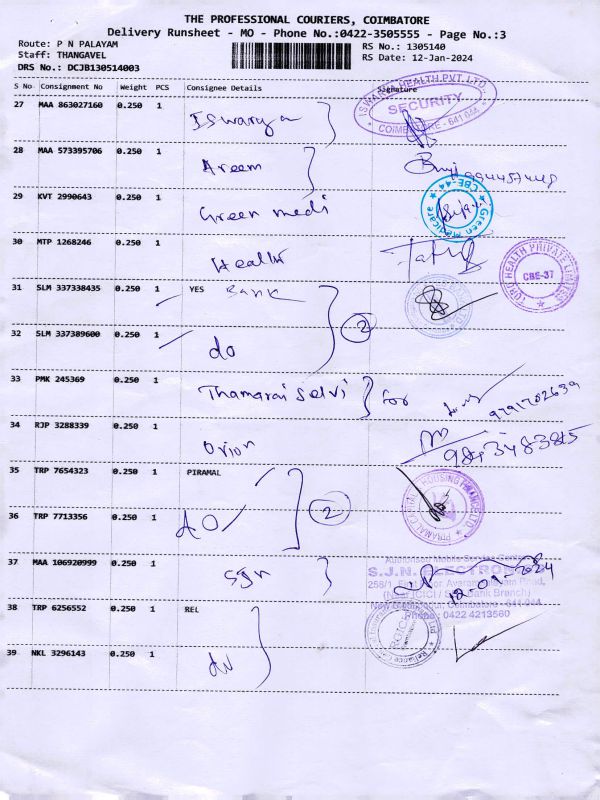 THE PROFESSIONAL COURIERS, COIMBATORE
Delivery Runsheet - MO - Phone No.:0422-3505555 - Page No.:3
Route: P N PALAYAM
Staff: THANGAVEL
DRS No.: DCJB130514003
RS No.: 1305140
RS Date: 12-Jan-2024
S No Consignment No Weight PCS Consignee Details Signature
27 MAA 863027160 0.250 1 Iswarya
ISWARYA HEALTH PVT. LTD. SECURITY COIMBATORE - 641 044
28 MAA 573395706 0.250 1 Areem
29 KVT 2990643 0.250 1 Green medi
Green Medicare CBE-44
30 MTP 1268246 0.250 1 Health
HEALTH PRIVATE LIMITED CBE-37
31 SLM 337338435 0.250 1 YES Bank
2
32 SLM 337389600 0.250 1 do
33 PMK 245369 0.250 1 Thamarai Selvi for
9791702639
34 RJP 3288339 0.250 1 Orion
35 TRP 7654323 0.250 1 PIRAMAL
PIRAMAL CAPITAL HOUSING FINANCE LTD
2
36 TRP 7713356 0.250 1 do
37 MAA 106920999 0.250 1 Sjn
Authorised Mobile Service
S.J.N. ELECTRO
Road,
(Near ICICI / Bank Branch)
Coimbatore - 641 044
Phone: 0422 4213560
38 TRP 6256552 0.250 1 REL
Reliance Ltd
39 NKL 3296143 0.250 1 do